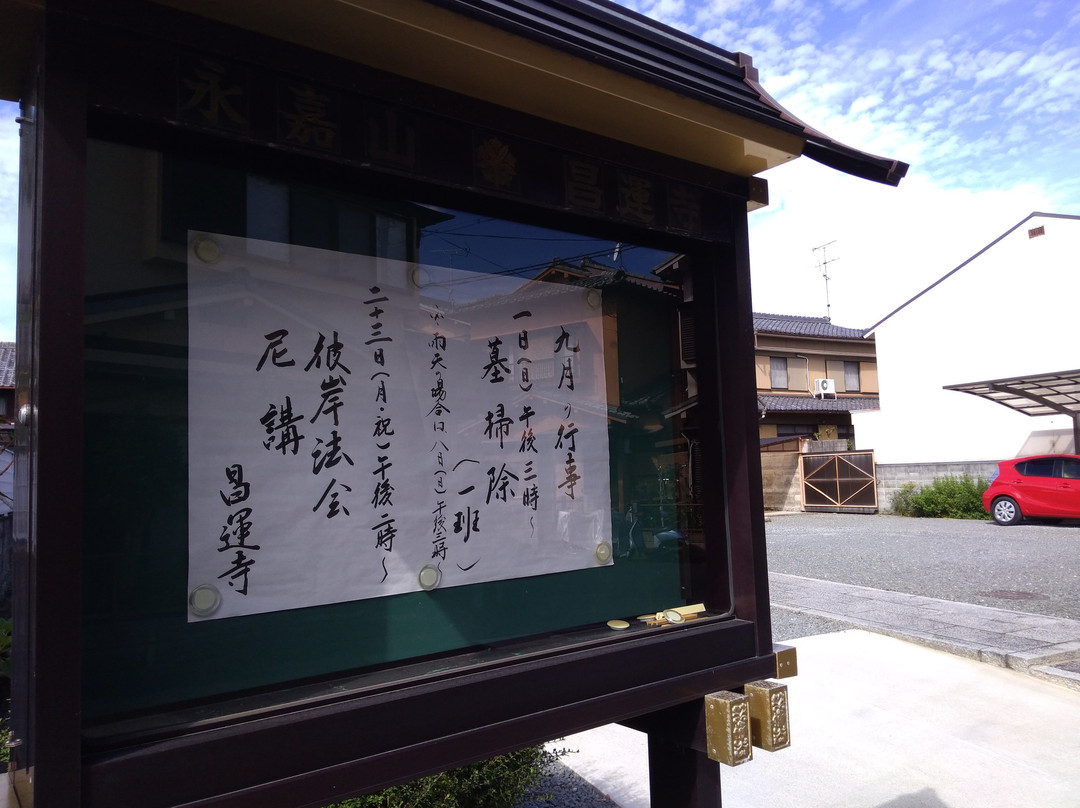 永嘉山 昌運寺
九月の行事
一日(日)午後三時～
墓掃除
(一班)
※雨天の場合は八日(日)午後三時～
二十三日(月・祝)午後二時～
彼岸法会
尼講
昌運寺